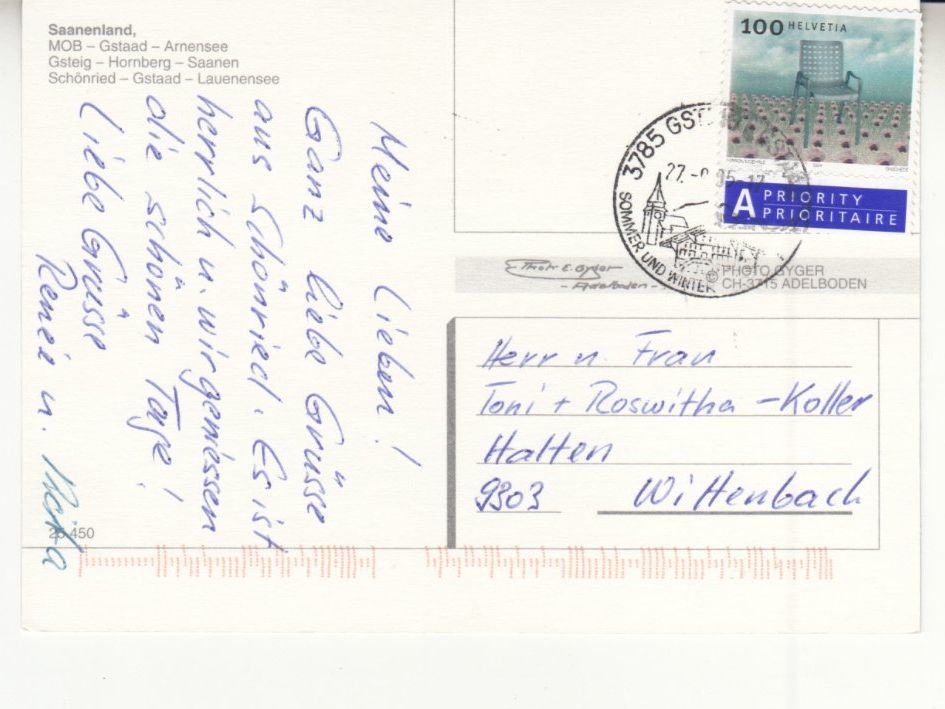 Saanenland,
MOB – Gstaad – Arnensee
Gsteig – Hornberg – Saanen
Schönried – Gstaad – Lauenensee
Meine Lieben!
Ganz liebe Grüsse
aus Schönried. Es ist
herrlich u. wir geniessen
die schönen Tage!
Liebe Grüsse
Renée u.
100 HELVETIA
A PRIORITY
PRIORITAIRE
3785
SOMMER UND WINTER
Photo E. Gyger
– Adelboden –
© PHOTO GYGER
CH-3715 ADELBODEN
Herr u. Frau
Toni + Roswitha – Koller
Halten
9303 Wittenbach